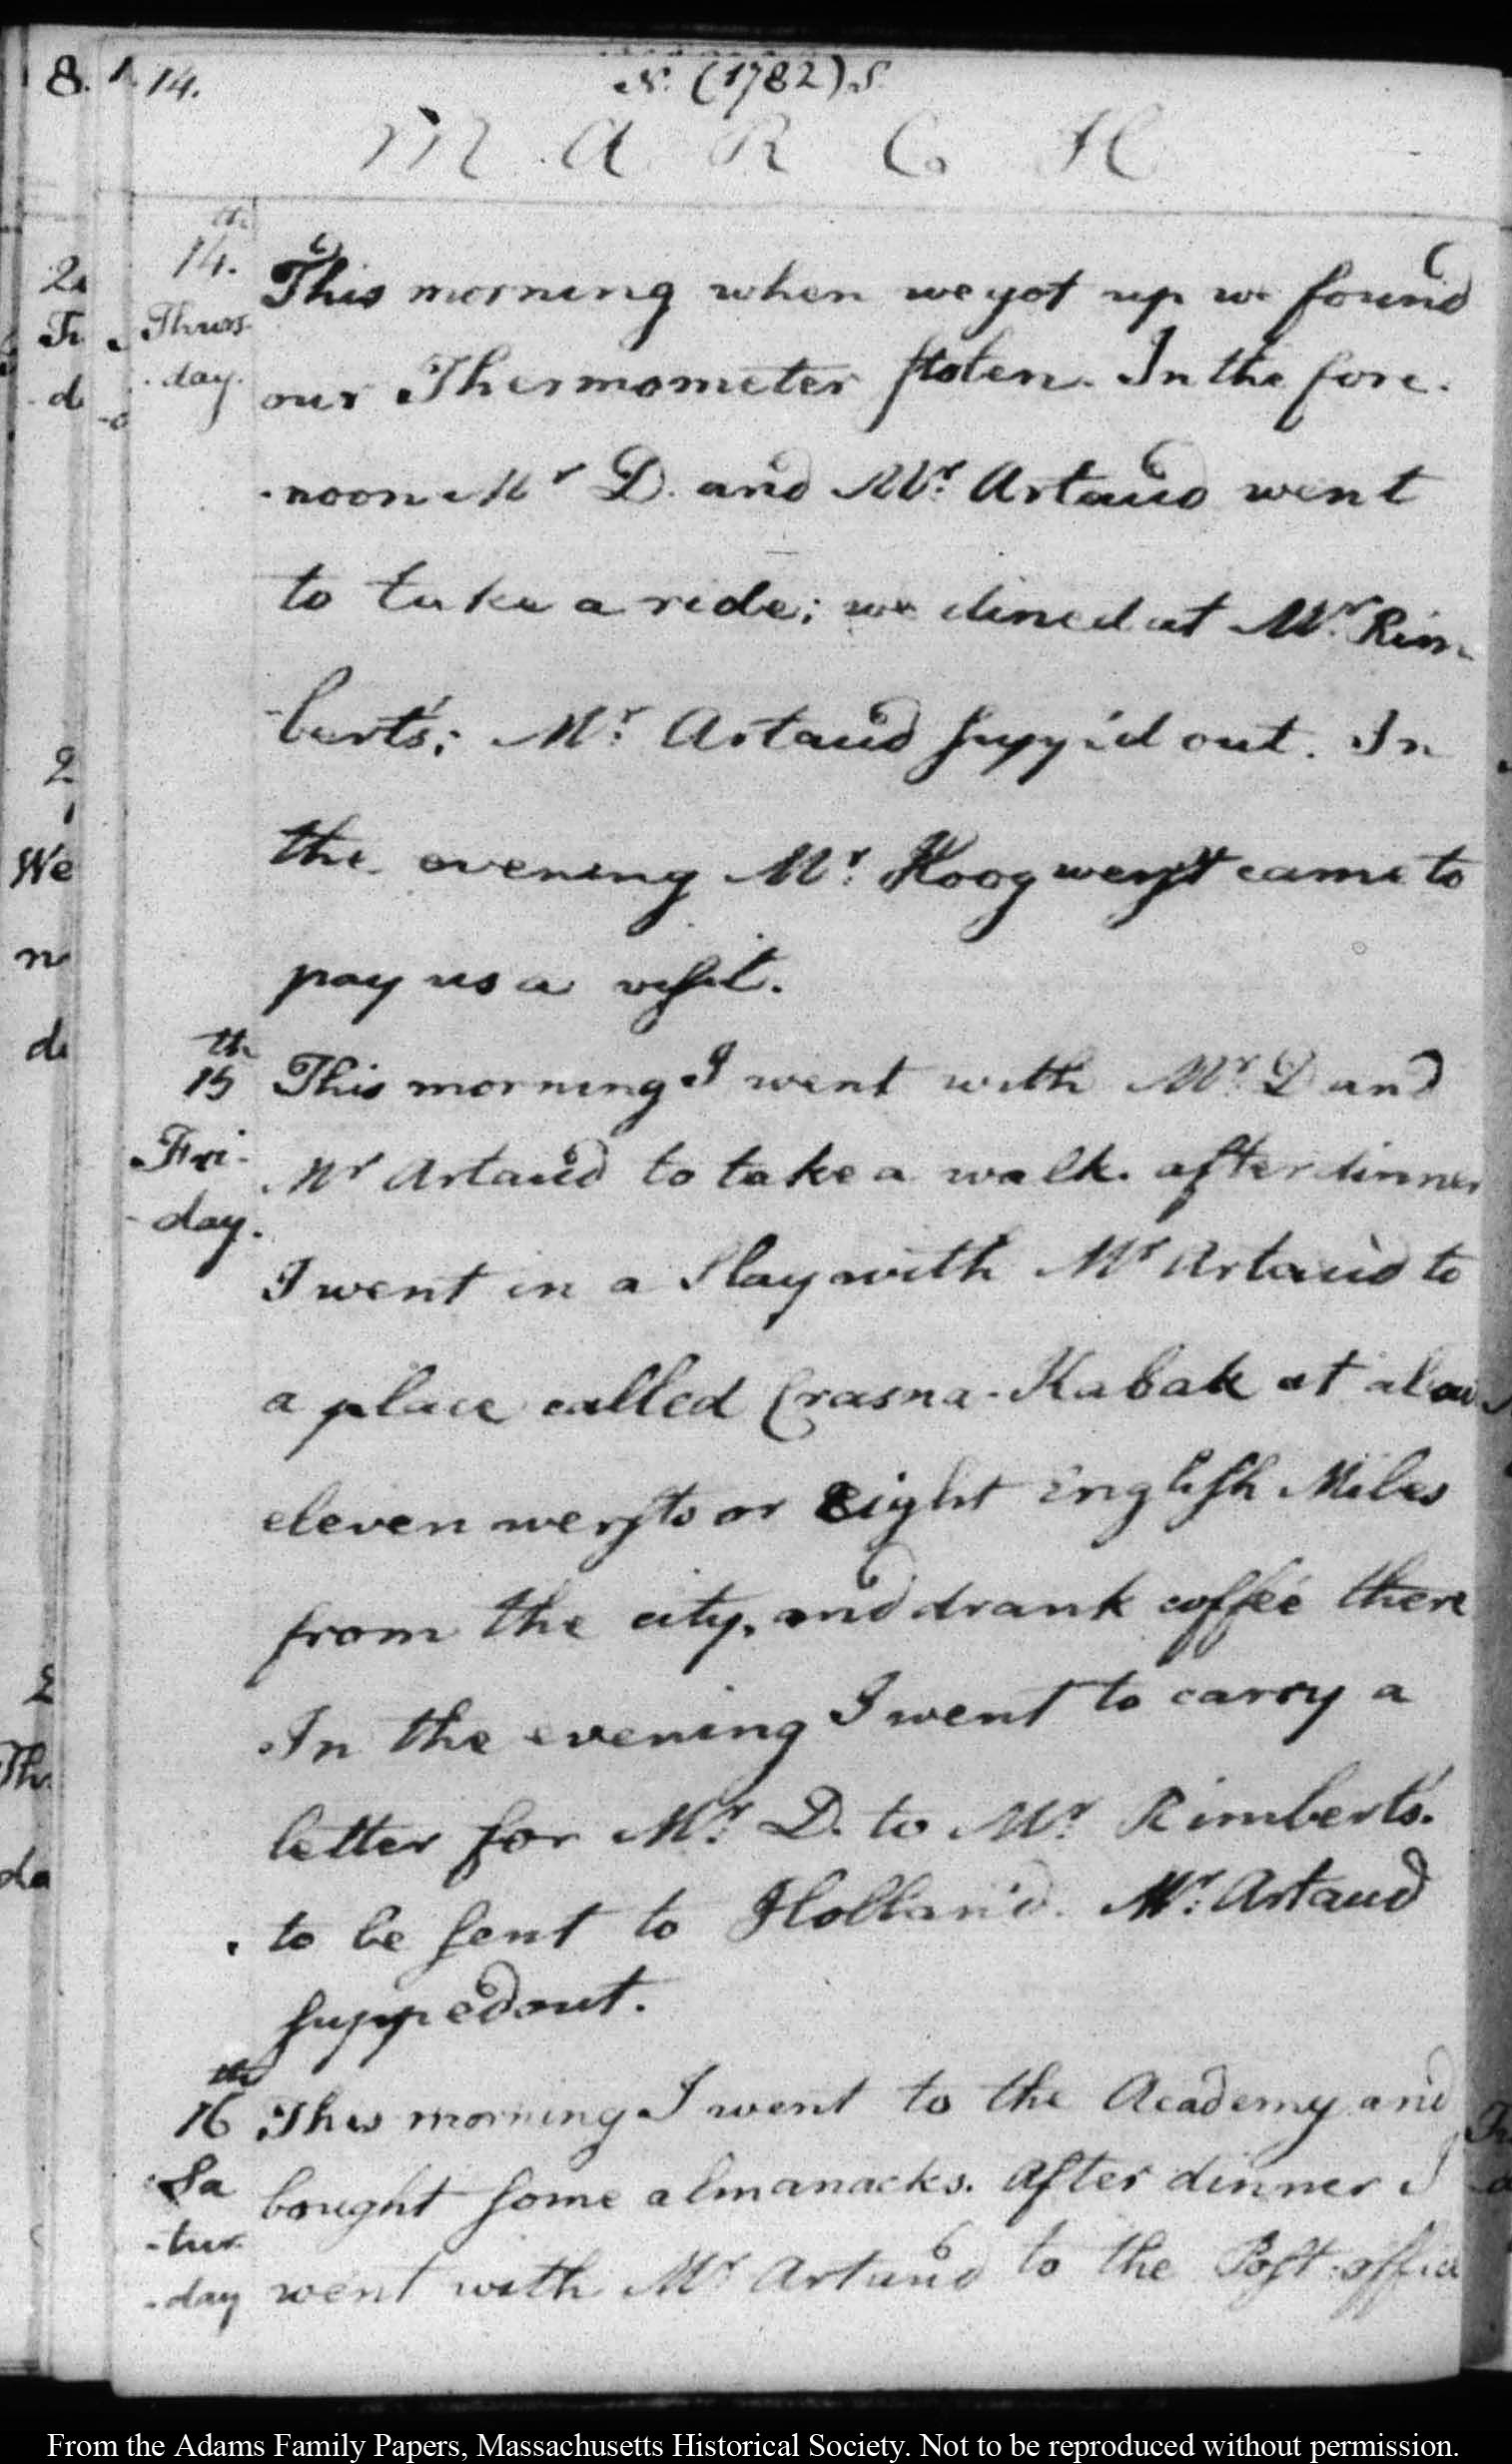 14. N. (1782) S.
MARCH
14.th Thurs-day. This morning when we got up we found
our Thermometer stolen. In the fore-
-noon Mr D. and Mr. Artaud went
to take a ride; we dined at Mr. Rim-
-bert's; Mr. Artaud supp'd out. In
the evening Mr. Hoogwerft came to
pay us a visit.
15th Fri-day. This morning I went with Mr. D and
Mr Artaud to take a walk. after dinner
I went in a Slay with Mr Artaud to
a place called Crasna-Kabak at about
eleven wersts or Eight English Miles
from the city, and drank coffee there
In the evening I went to carry a
letter for Mr. D. to Mr. Rimbert's.
to be sent to Holland. Mr. Artaud
supped out.
16th Sa-tur-day This morning I went to the Academy and
bought some almanacks. After dinner I
went with Mr Artaud to the Post-office
From the Adams Family Papers, Massachusetts Historical Society. Not to be reproduced without permission.